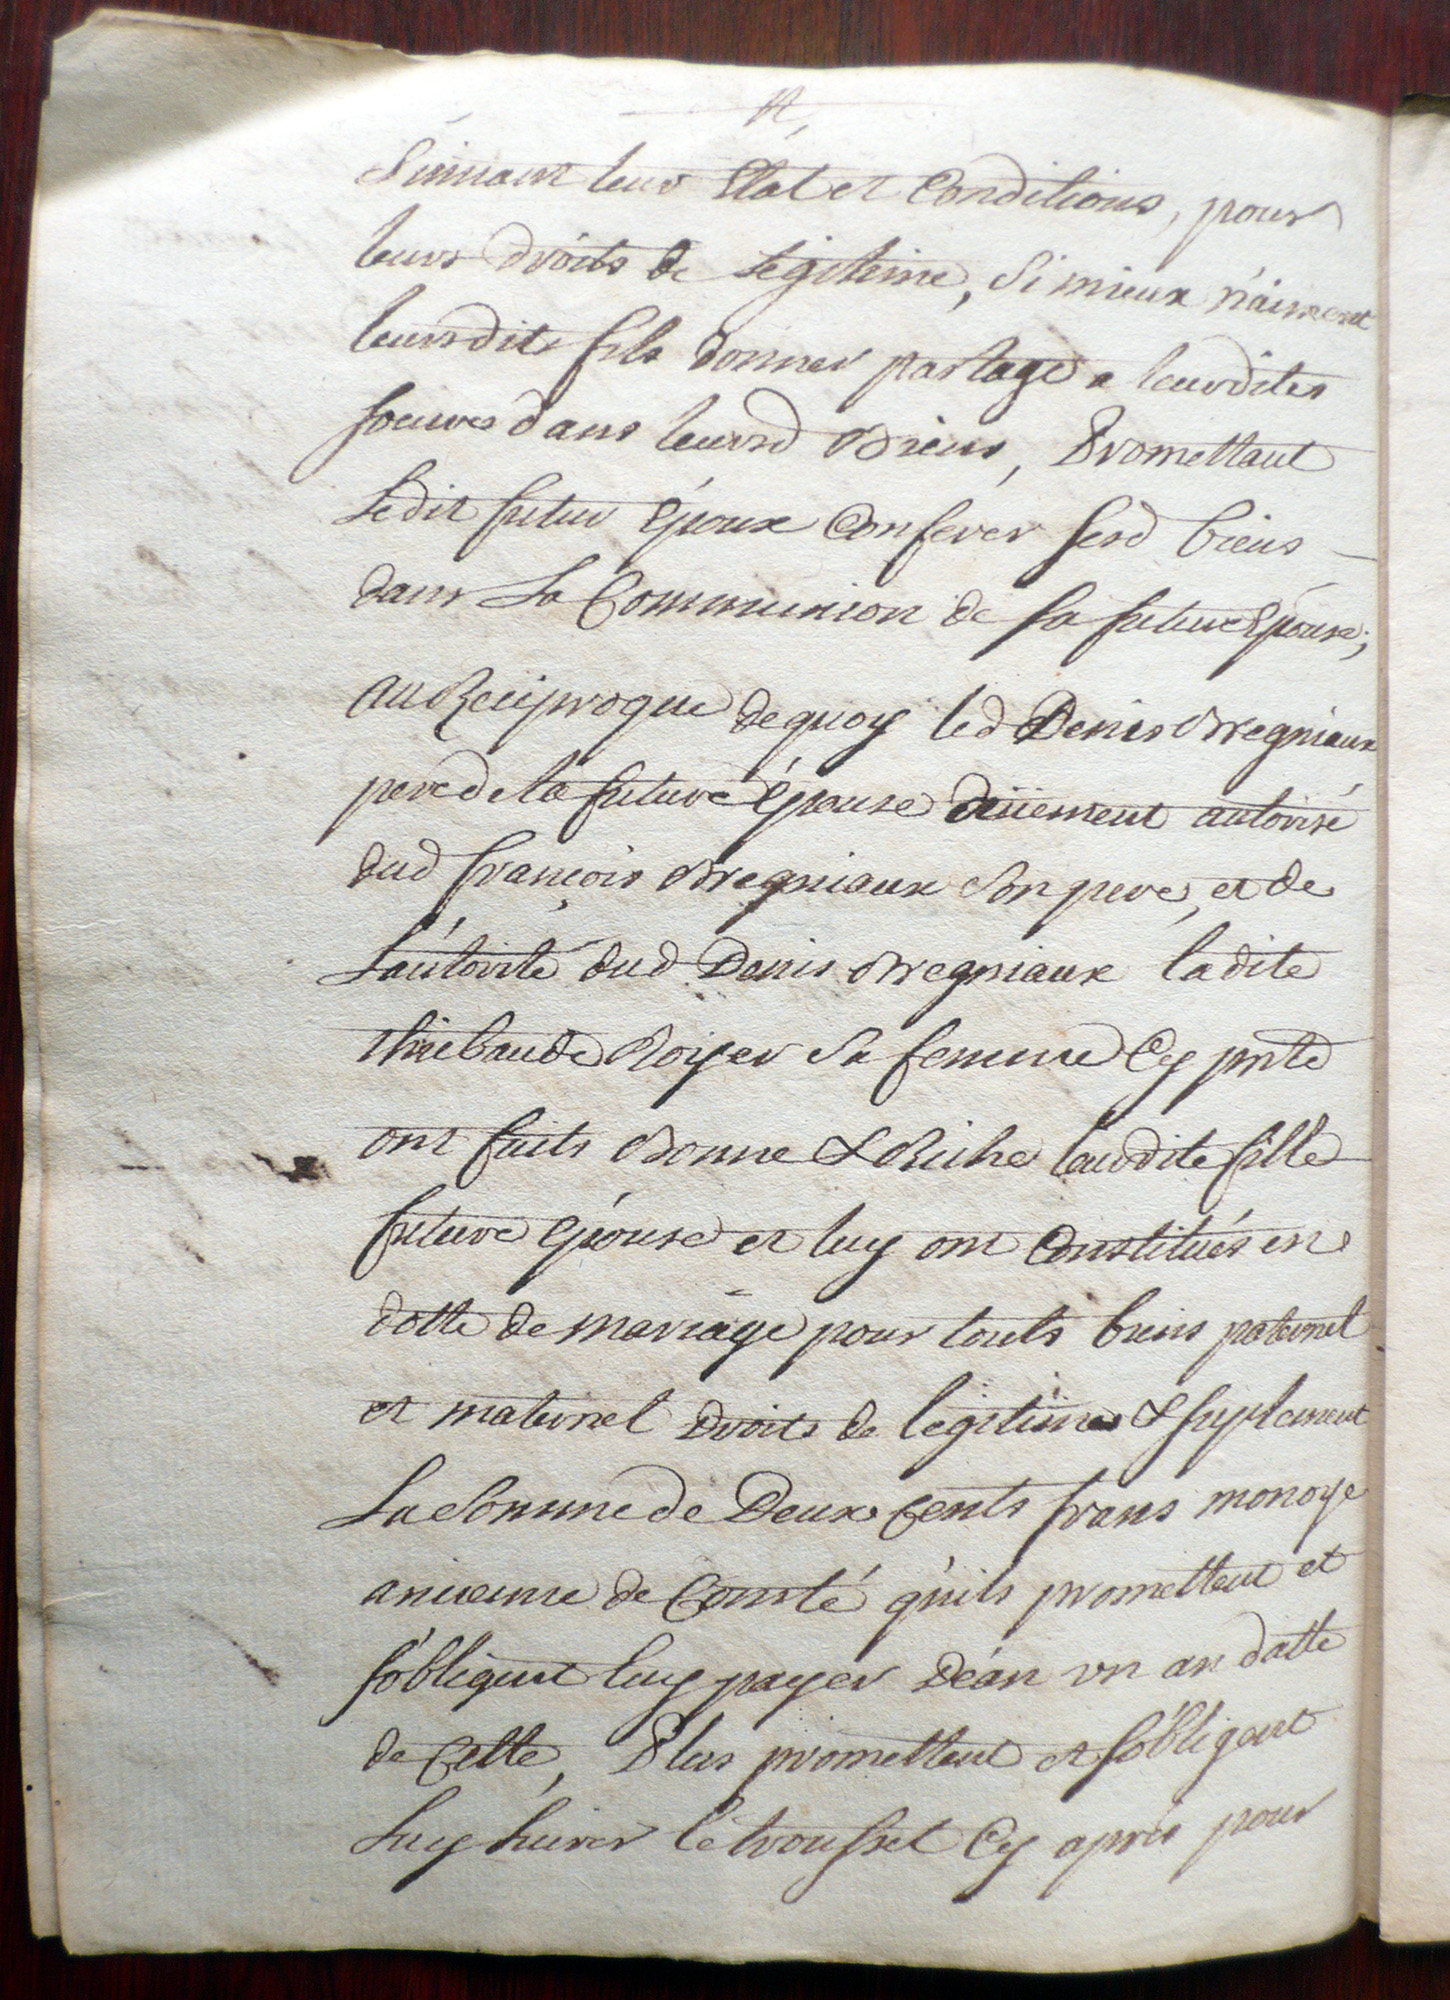 Suivant leur Etat et Conditions, pour
leurs droits de Legitime, Si mieux n'aiment
leursdits fils donner partage a leursdites
soeures dans leursd Biens, Promettant
Ledit futur Epoux Conferer sesd biens
dans La Communion de sa future Epouse;
au Reciproque de quoy led Denis Bregniaux
pere de la future Epouse düement autorisé
dud françois Bregniaux Son pere, et de
L'autorité dud Denis Bregniaux ladite
thiebaude Roiyer Sa femme Cy pnte
ont faits Bonne & Riche leurdite fille
future Epouse et luy ont Constitués en
dotte de mariage pour touts biens paternel
et maternel droits de legitime & suplement
La Somme de Deux Cents frans monoye
ancienne de Comté qu'ils promettent et
s'obligent luy payer Déan un an datte
de Cette, Plus promettent et s'obligent
Luy livrer le troussel Cy après pour